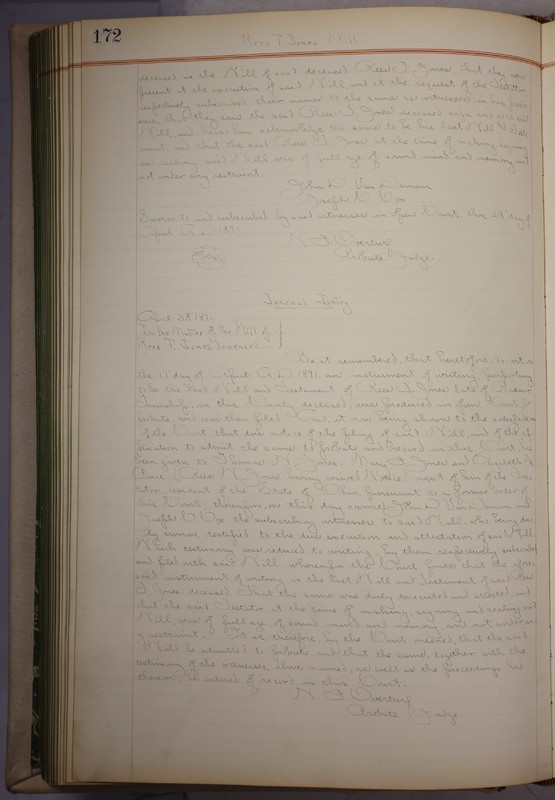 172
Rees T. Jones Will
deceased, as the Will of said deceased Rees T. Jones that they were
present at the execution of said Will, and at the request of the Testator
respectively subscribed their names to the same as witnesses, in his pres-
ence, that they saw the said Rees T. Jones deceased sign and seal said
Will, and heard him acknowledge the same to be his last Will & Testa-
ment, and that the said Rees T. Jones at the time of making, signing
and sealing said Will, was of full age, of sound mind and memory, and
not under any restraint.
John D. Van Deman
Joseph
Sworn to and subscribed by said witnesses in open Court, this 28" day of
April A.D. 1891.
N. F. Overturf
Seal
Probate Judge.
Journal Entry
April 28 1891
In the Matter of the Will of
Rees T. Jones deceased
Be it remembered, that heretofore, to wit, on
the 11" day of April A.D. 1891 an instrument of writing, purporting
to be the Last Will and Testament of Rees T. Jones late of Radnor
Township, in this County, deceased, was produced in open Court for
probate, and was then filed. And, it now being shown to the satisfaction
of the Court, that due notice of the filing of said Will, and of the ap-
plication to admit the same to probate and record in this Court, has
been given to Thomas Jones Mary Jones and Elizabeth
(Rees Jones having waived Notice) next of kin of the Tes-
tator resident of the State of Ohio, pursuant to a former order of
this Court, therefore, on this day came John D. Van Deman and
Joseph the subscribing witnesses to said Will, who being du-
ly sworn, testified to the due execution and attestation of said Will
Which testimony was reduced to writing, by them respectively subscribed
and filed with said Will, whereupon the Court finds that the afore-
said instrument of writing is the Last Will and Testament of said Rees
T. Jones, deceased. That the same was duly executed and attested; and
that the said Testator at the time of making, signing and sealing said
Will, was of full age, of sound mind and memory, and not under an-
y restraint. It is therefore, by the Court ordered, that the said
Will be admitted to probate, and that the same, together with the
testimony of the witnesses above named, as well as the proceedings had
therein, be entered of record in this Court.
N. F. Overturf
Probate Judge